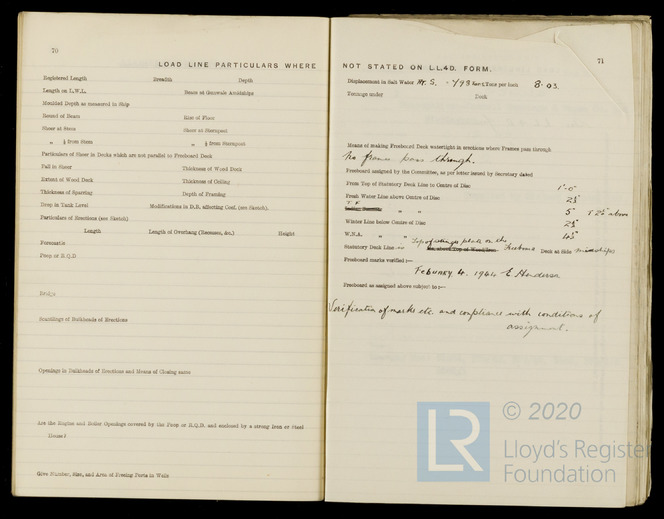 70
LOAD LINE PARTICULARS WHERE
Registered Length Breadth Depth
Length on L.W.L. Beam at Gunwale Amidships
Moulded Depth as measured in Ship
Round of Beam Rise of Floor
Sheer at Stem Sheer at Sternpost
„ ⅛ from Stem „ ⅛ from Sternpost
Particulars of Sheer in Decks which are not parallel to Freeboard Deck
Fall in Sheer Thickness of Wood Deck
Extent of Wood Deck Thickness of Ceiling
Thickness of Sparring Depth of Framing
Drop in Tank Level Modifications in D.B. affecting Coef. (see Sketch).
Particulars of Erections (see Sketch)
Length Length of Overhang (Recesses, &c.) Height
Forecastle
Poop or R.Q.D
Bridge
Scantlings of Bulkheads of Erections
Openings in Bulkheads of Erections and Means of Closing same
Are the Engine and Boiler Openings covered by the Poop or R.Q.D. and enclosed by a strong Iron or Steel
House?
Give Number, Size, and Area of Freeing Ports in Wells
71
NOT STATED ON LL.4D. FORM.
Displacement in Salt Water Tons per Inch 8.03.
Tonnage under Deck
Means of making Freeboard Deck watertight in erections where Frames pass through
No frames pass through.
Freeboard assigned by the Committee, as per letter issued by Secretary dated
From Top of Statutory Deck Line to Centre of Disc 1'-0"
Fresh Water Line above Centre of Disc 2½"
T.F. „ „ 5" above
Winter Line below Centre of Disc 2½"
W.N.A. „ „ 4½"
Statutory Deck Line is Top of stringer plate on the Freeboard Deck at Side midships
Freeboard marks verified :—
February 4. 1944 E Henderson
Freeboard as assigned above subject to :—
Verification of marks etc. and compliance with conditions of
assignment.
LR © 2020
Lloyd's Register
Foundation